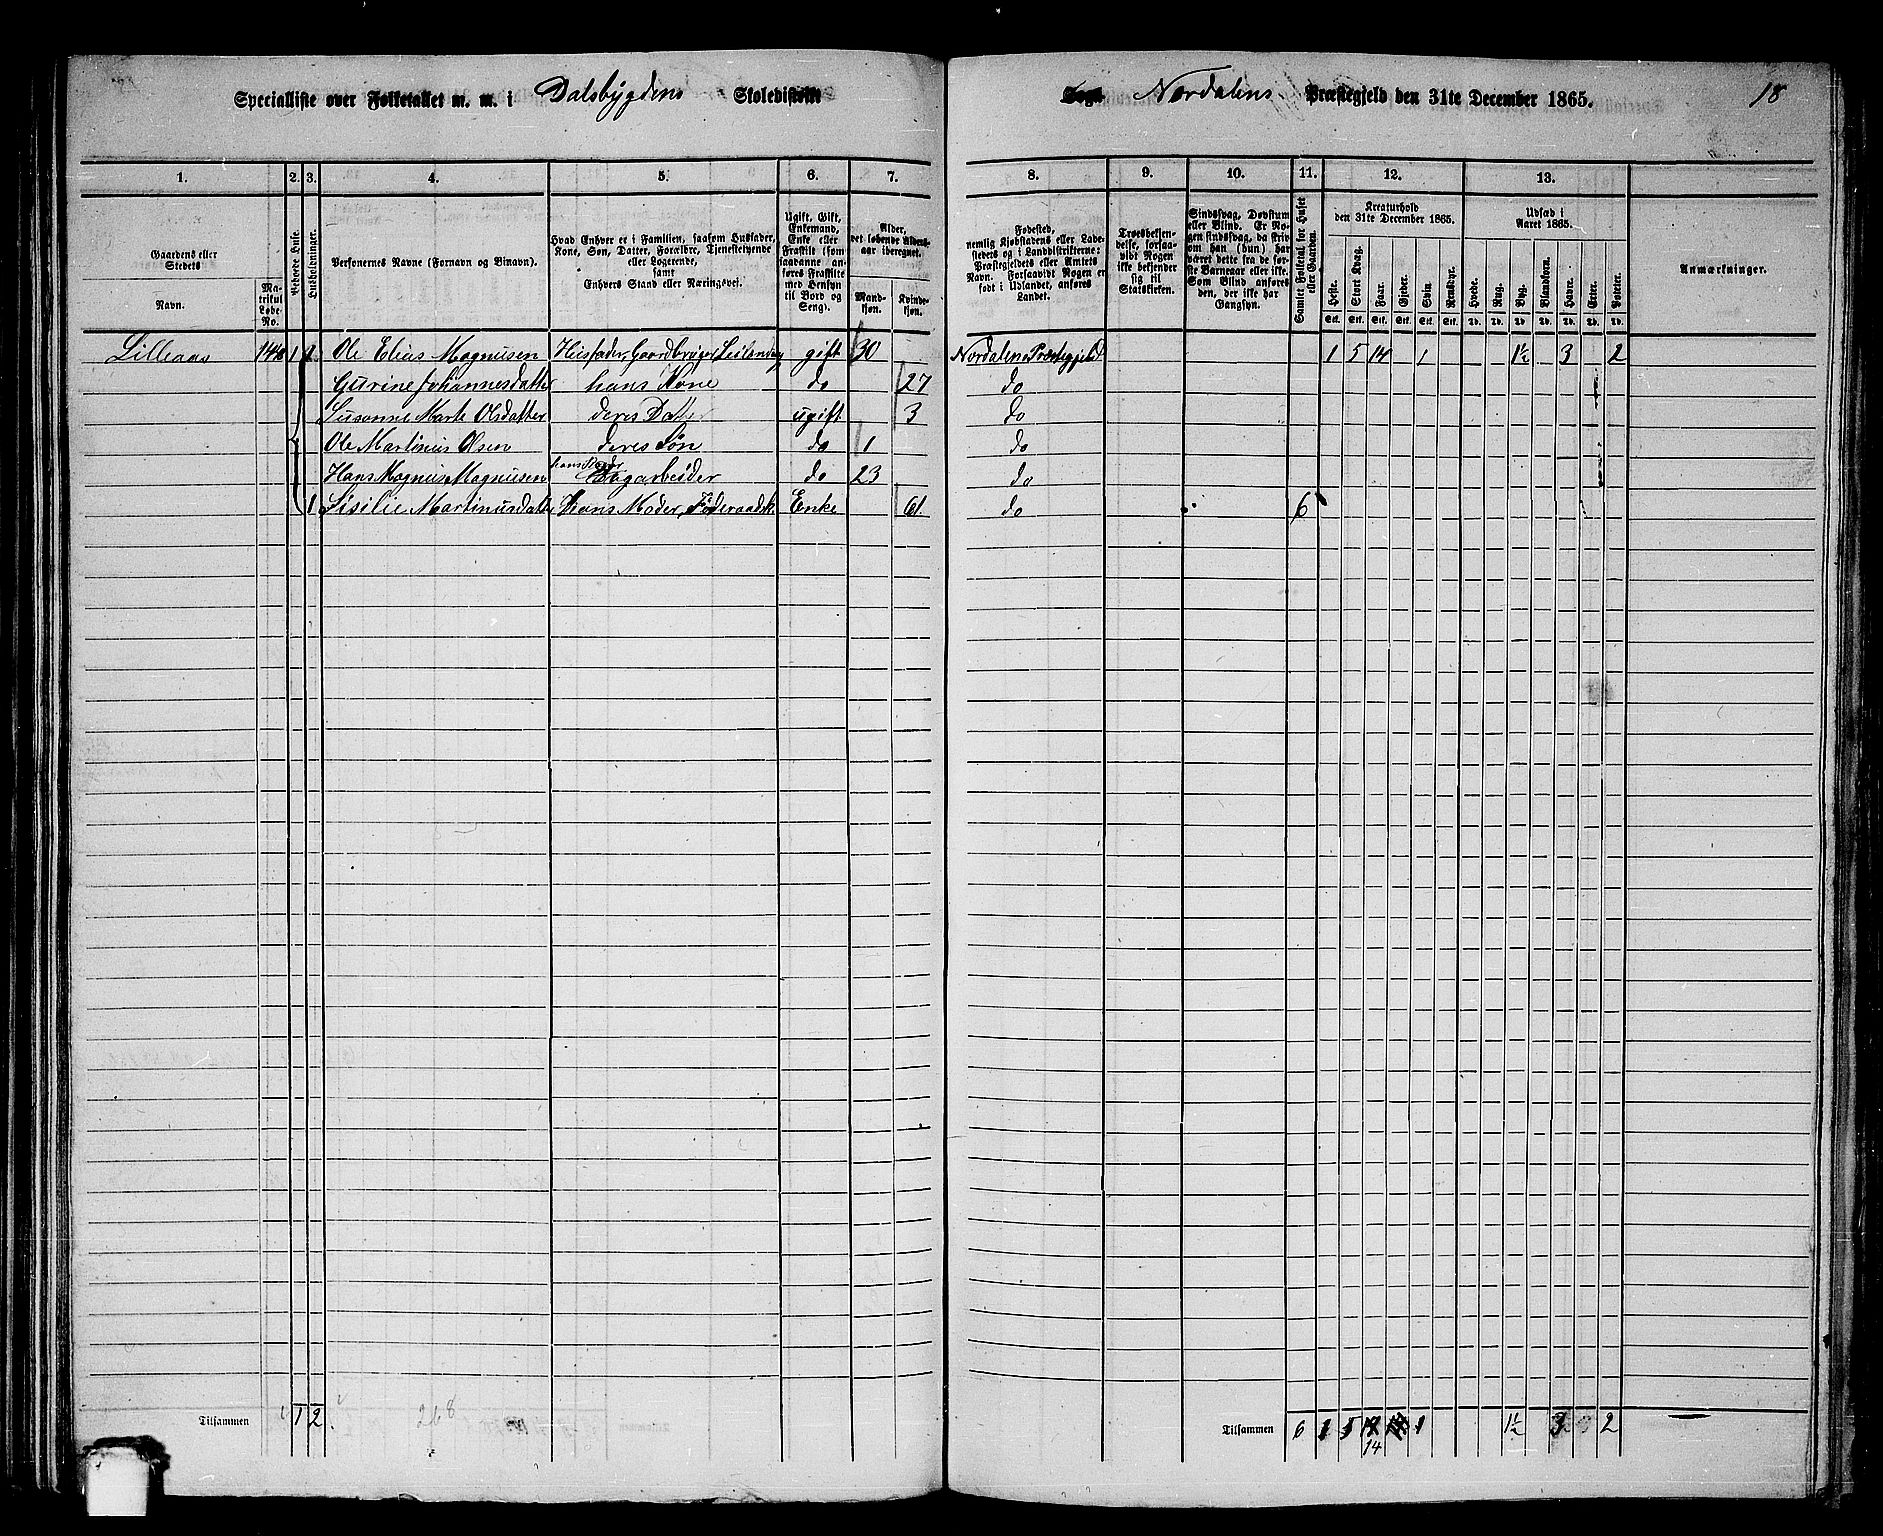 Specialliste over Folketallet m. m. i Dalsbygdens Skoledistrikt
Sogn Nordalens Præstegjeld den 31te December 1865. 18
1. 2. 3. 4. 5. 6. 7. 8. 9. 10. 11. 12. 13.
Gaardens eller Stedets
Navn.
Matrikul Løbe-No.
Bebøede Huse.
Husholdninger.
Personernes Navne (Fornavn og Binavn).
Hvad Enhver er i Familien, saasom Husfader, Kone, Søn, Datter, Forældre, Tjenestetyende eller Logerende, samt Enhvers Stand eller Næringsvei.
Ugift, Gift, Enkemand, Enke eller Fraskilt (som saadanne anføres Fraskilte med Hensyn til Bord og Seng).
Alder, det løbende Aldersaar iberegnet.
Mandkjøn.
Kvindekjøn.
Fødested, nemlig Kjøbstadens eller Ladestedets og i Landdistrikterne: Præstegjeldets eller Amtets Navn. Forsaavidt Nogen er født i Udlandet, anføres Landet.
Troesbekjendelse, forsaavidt Nogen ikke bekjender sig til Statskirken.
Sindssvag, Døvstum eller Blind. Er Nogen sindssvag, da skrives om han (hun) har været dette fra de første Barneaar eller ikke. Som Blind anføres den, der ikke har Gangsyn.
Samlet Folketal for Huset eller Gaarden.
Kreaturhold den 31te December 1865.
Heste. Stort Kvæg. Faar. Gjeder. Svin. Rensdyr.
Udsæd i Aaret 1865.
Hvede. Rug. Byg. Blandkorn. Havre. Erter. Poteter.
Anmærkninger.
Lilleaas 140 1 1 Ole Elias Magnusen Husfader, Gaardbruger, Leilending gift 30 Nordalens Præstegjeld 1 5 14 1 1½ 3 2
Gurine Johannesdatter hans Kone do 27 do
Susanne Marte Olsdatter deres Datter ugift 3 do
Ole Martinus Olsen deres Søn do 1 do
Hans Magnus Magnusen hans Broder Dagarbeider do 23 do
1 Sisilie Martinusdatter Hans Moder, Føderaadsk. Enke 61 do 6
Tilsammen 1 2 268
Tilsammen 6 1 5 14 1 1½ 3 2